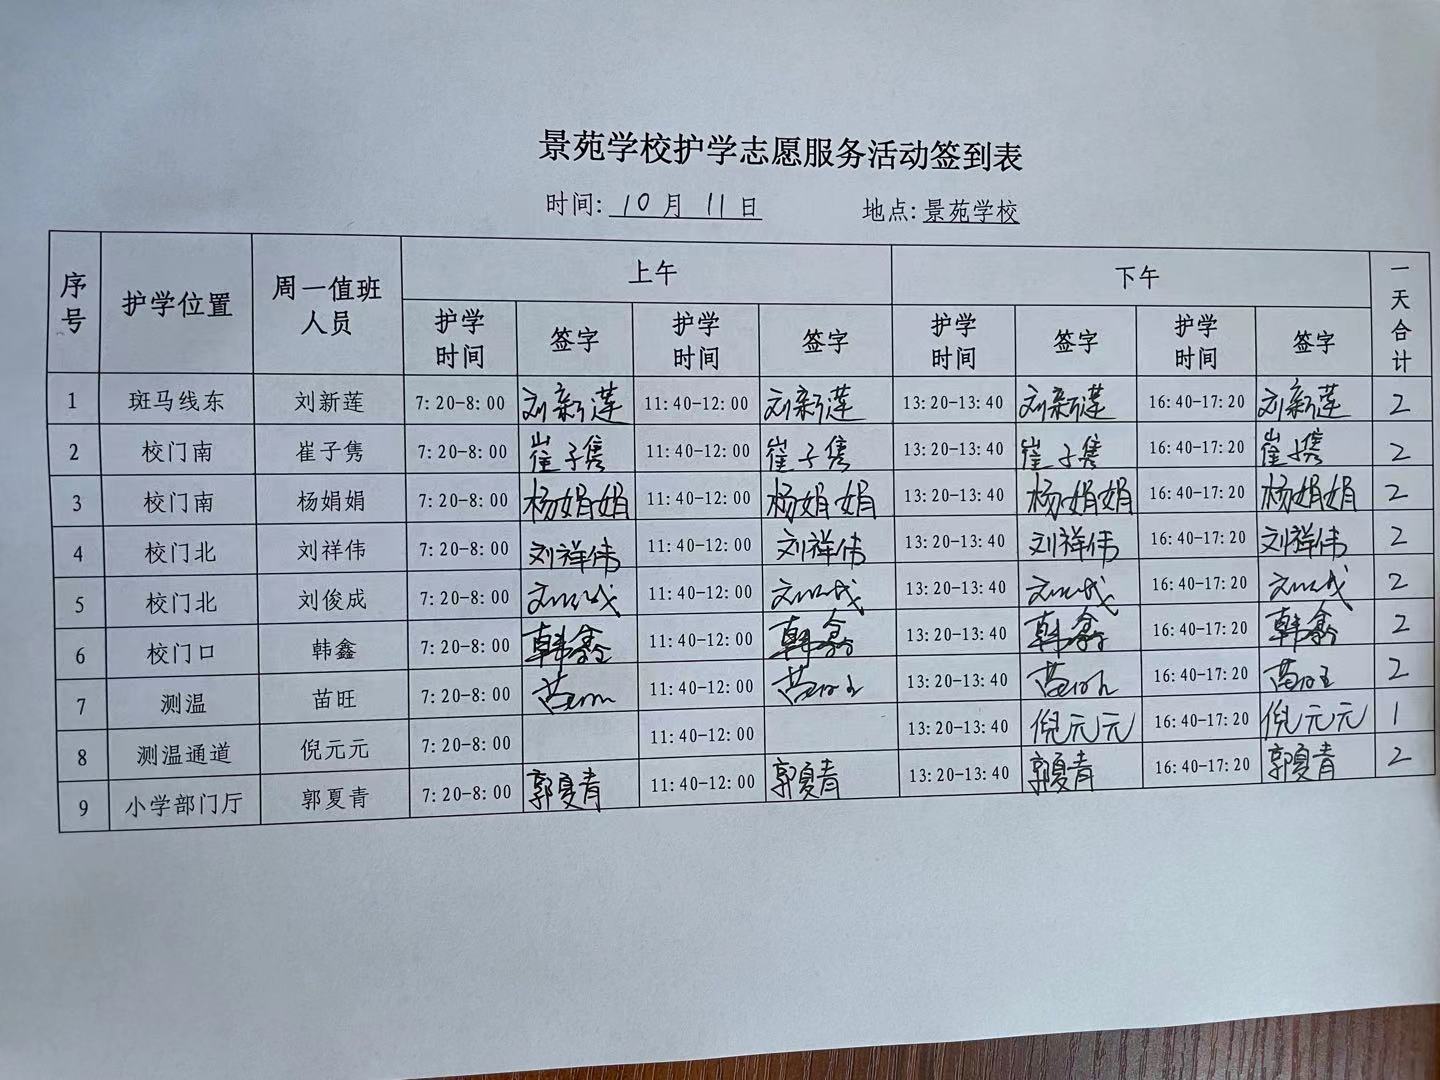 景苑学校护学志愿服务活动签到表
时间: 10 月 11 日 地点: 景苑学校
序号 护学位置 周一值班人员 上午 下午 一天合计
护学时间 签字 护学时间 签字 护学时间 签字 护学时间 签字
1 斑马线东 刘新莲 7:20-8:00 刘新莲 11:40-12:00 刘新莲 13:20-13:40 刘新莲 16:40-17:20 刘新莲 2
2 校门南 崔子隽 7:20-8:00 崔子隽 11:40-12:00 崔子隽 13:20-13:40 崔子隽 16:40-17:20 崔子隽 2
3 校门南 杨娟娟 7:20-8:00 杨娟娟 11:40-12:00 杨娟娟 13:20-13:40 杨娟娟 16:40-17:20 杨娟娟 2
4 校门北 刘祥伟 7:20-8:00 刘祥伟 11:40-12:00 刘祥伟 13:20-13:40 刘祥伟 16:40-17:20 刘祥伟 2
5 校门北 刘俊成 7:20-8:00 11:40-12:00 13:20-13:40 16:40-17:20 2
6 校门口 韩鑫 7:20-8:00 韩鑫 11:40-12:00 韩鑫 13:20-13:40 韩鑫 16:40-17:20 韩鑫 2
7 测温 苗旺 7:20-8:00 11:40-12:00 苗旺 13:20-13:40 16:40-17:20 苗旺 2
8 测温通道 倪元元 7:20-8:00 11:40-12:00 13:20-13:40 倪元元 16:40-17:20 倪元元 1
9 小学部门厅 郭夏青 7:20-8:00 郭夏青 11:40-12:00 郭夏青 13:20-13:40 郭夏青 16:40-17:20 郭夏青 2